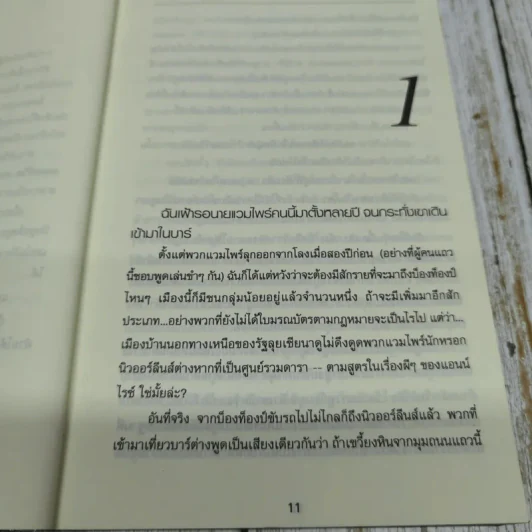 1
ฉันเฝ้ารอนายแวมไพร์คนนี้มาตั้งหลายปี จนกระทั่งเขาเดิน
เข้ามาในบาร์
ตั้งแต่พวกแวมไพร์ลุกออกจากโลงเมื่อสองปีก่อน (อย่างที่ผู้คนแถว
นี้ชอบพูดเล่นขำๆ กัน) ฉันก็ได้แต่หวังว่าจะต้องมีสักรายที่จะมาถึงบ็องท็องป์
ไหนๆ เมืองนี้ก็มีชนกลุ่มน้อยอยู่แล้วจำนวนหนึ่ง ถ้าจะมีเพิ่มมาอีกสัก
ประเภท...อย่างพวกที่ยังไม่ได้ใบมรณบัตรตามกฎหมายจะเป็นไรไป แต่ว่า...
เมืองบ้านนอกทางเหนือของรัฐลุยเซียนาดูไม่ดึงดูดพวกแวมไพร์นักหรอก
นิวออร์ลีนส์ต่างหากที่เป็นศูนย์รวมดารา -- ตามสูตรในเรื่องผีๆ ของแอนน์
ไรซ์ ใช่มั้ยล่ะ?
อันที่จริง จากบ็องท็องป์ขับรถไปไม่ไกลก็ถึงนิวออร์ลีนส์แล้ว พวกที่
เข้ามาเที่ยวบาร์ต่างพูดเป็นเสียงเดียวกันว่า ถ้าเขวี้ยงหินจากมุมถนนแถวนี้
11